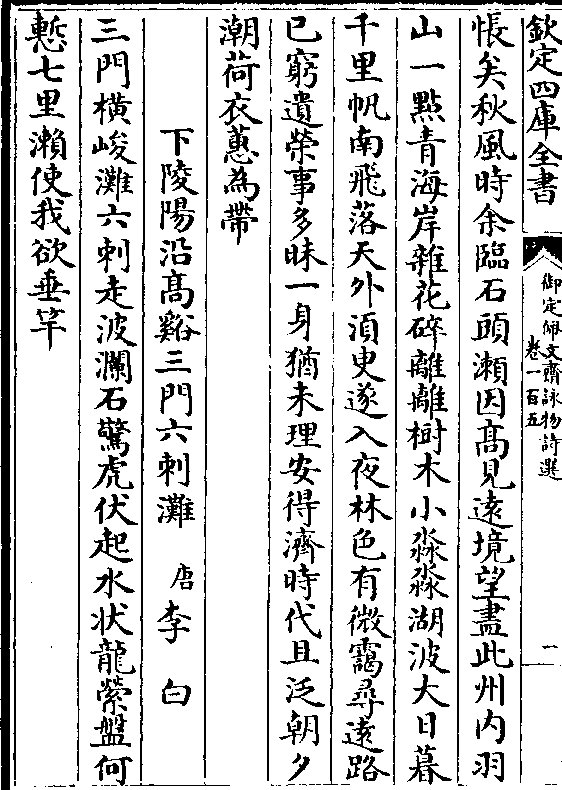 欽定四庫全書
御定佩文齋詠物詩選
卷一百五
一
悵矣秋風時余臨石頭瀨因髙見遠境望盡此州内羽
山一點青海岸雜花碎離離樹木小淼淼湖波大日暮
千里帆南飛落天外湏臾遂入夜林色有微靄尋遠路
已窮遺榮事多昧一身猶未理安得濟時代且泛朝夕
潮荷衣蕙為帶
下陵陽沿髙谿三門六刺灘　唐李白
三門橫峻灘六刺走波瀾石驚虎伏起水状龍縈盤何
慙七里瀨使我欲垂竿